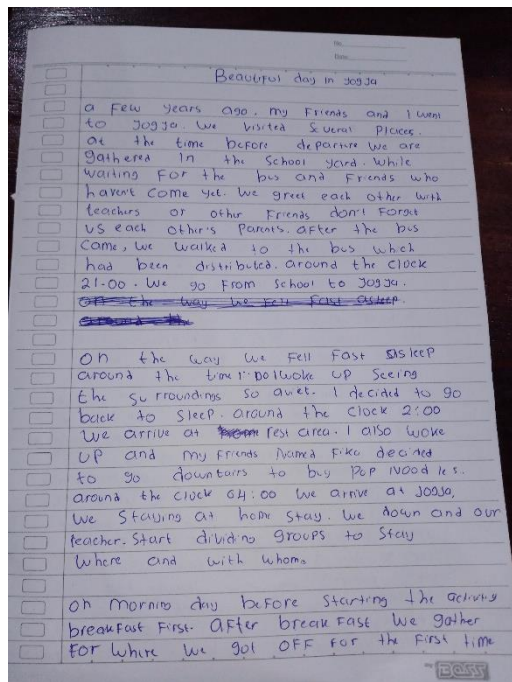 No.
Date.
Beautiful day in Jogja
a few years ago. my Friends and I went
to Jogja. we visited Several Places.
at the time before departure we are
gathered In the School yard. while
waiting For the bus and Friends who
haven't come yet. we greet each other with
teachers or other Friends don't Forget
us each other's Parents. after the bus
came, we walked to the bus which
had been distributed. around the clock
21.00. we go From School to Jogja.
on the way we Fell Fast asleep
around
on the way we Fell Fast asleep
around the time woke up Seeing
the surroundings so quiet. I decided to go
back to Sleep. around the clock 2:00
we arrive at rest area. I also woke
up and my Friends Named Fika decided
to go downtairs to buy Pop Noodles.
around the clock 04:00 we arrive at Jogja,
we Staying at home Stay. we down and our
teacher. Start dividing groups to Stay
where and with whom.
on morning day before starting the activity
breakfast First. after breakfast we gather
For where we got OFF For the First time
my BOSS